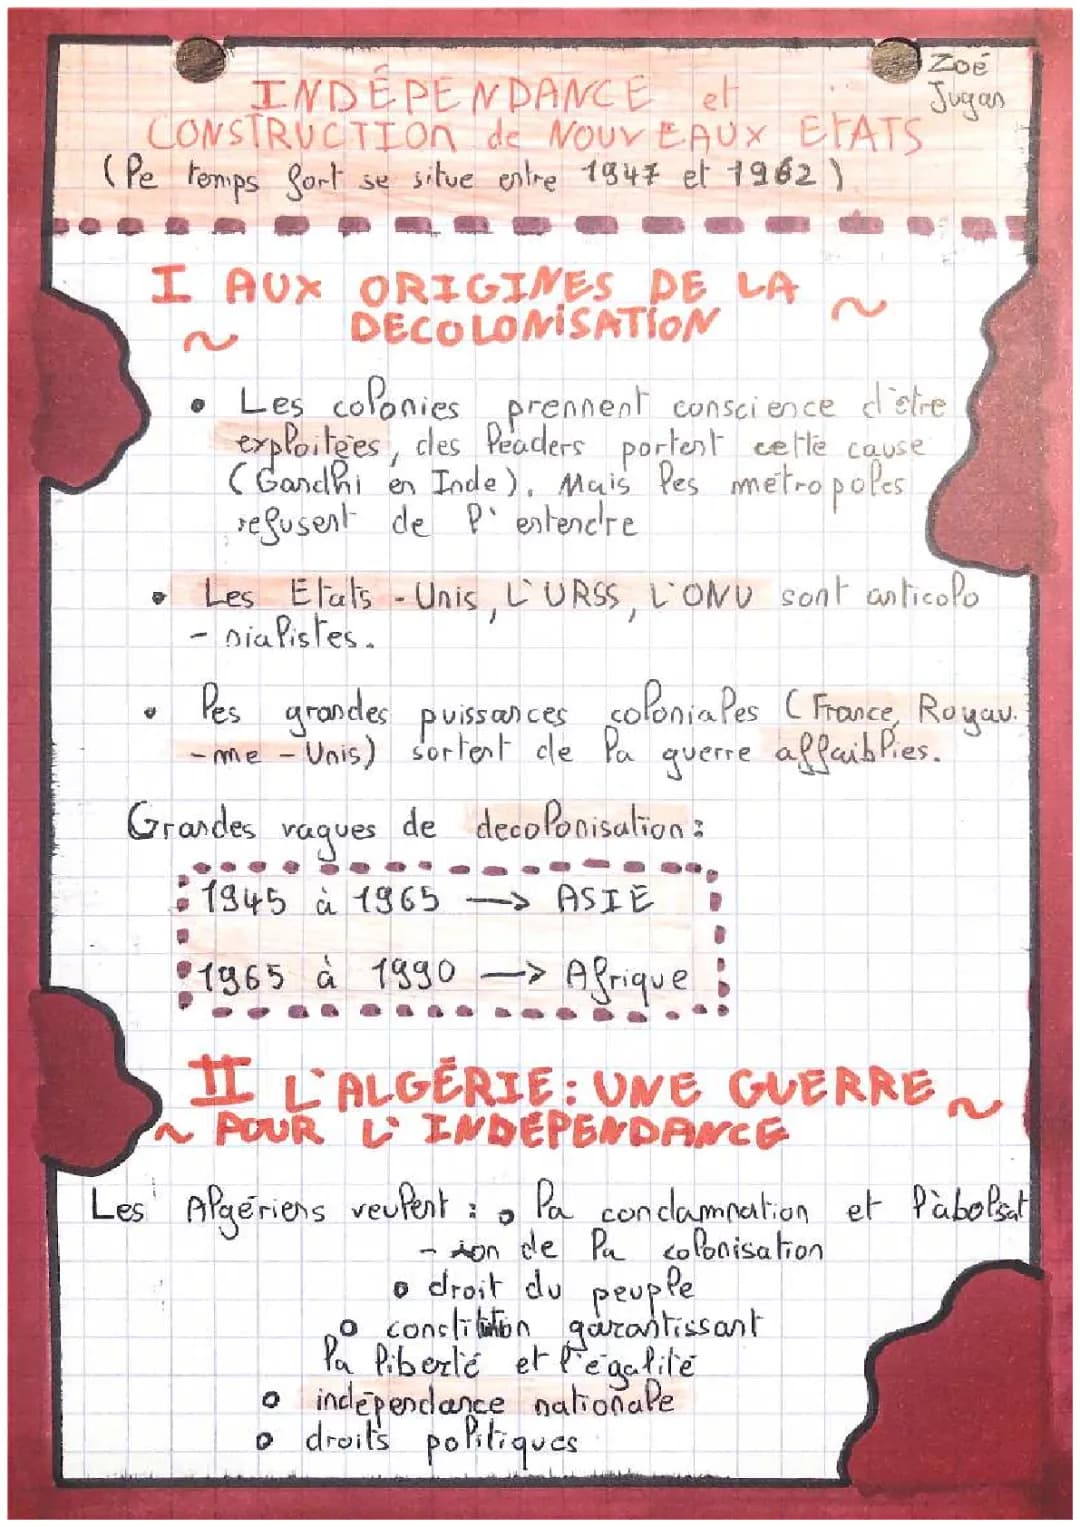 Zoé
Jugan
INDÉPENDANCE et
CONSTRUCTION de NOUVEAUX ETATS
(le temps fort se situe entre 1947 et 1962)
I AUX ORIGINES DE LA
DECOLONISATION
• Les colonies prennent conscience d'être
exploitées, des leaders portent cette cause
(Gandhi en Inde). Mais les métropoles
refusent de l'entendre
• Les Etats-Unis, L'URSS, L'ONU sont anticolo
-nialistes.
• les grandes puissances coloniales (France, Royau.
-me-Unis) sortent de la guerre affaiblies.
Grandes vagues de decolonisation :
1945 à 1965 → ASIE
1965 à 1990 → Afrique
II L'ALGÉRIE : UNE GUERRE
POUR L'INDÉPENDANCE
Les Algériens veulent : • la condamnation et l'àbolsat
-ion de la colonisation
• droit du peuple
• constitution garantissant
la liberté et l'égalité
• indépendance nationale
• droits politiques